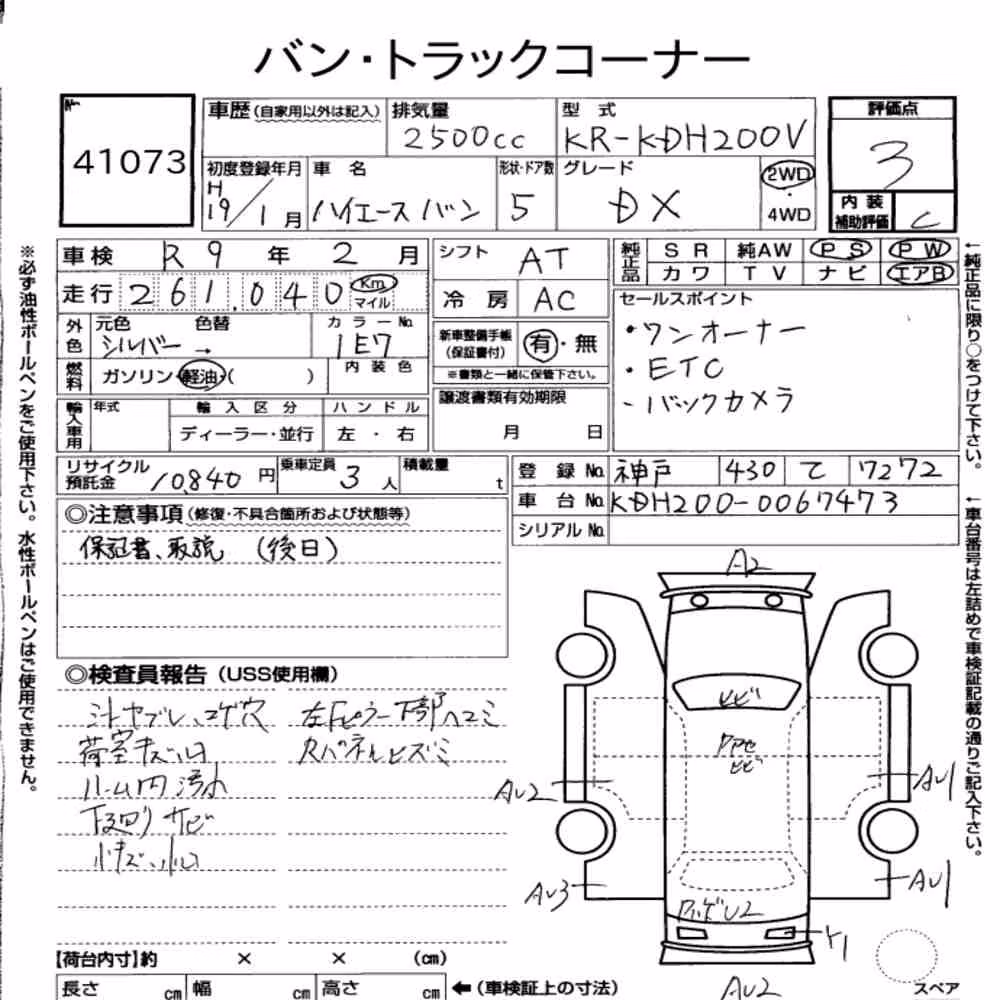 バン・トラックコーナー
No.
41073
車歴(自家用以外は記入)
排気量
2500cc
型 式
KR-KDH200V
初度登録年月
H
19/1月
車 名
ハイエースバン
形状・ドア数
5
グレード
DX
2WD
・
4WD
評価点
3
内 装
補助評価
C
車検 R9年 2月
走行 261,040 Km
マイル
外色
元色 色替
シルバー→
カラーNo.
1E7
燃料
ガソリン・軽油・( )
内 装 色
輸入車用
年式
輸 入 区 分
ディーラー・並行
ハ ン ド ル
左 ・ 右
シフト
AT
冷 房
AC
新車整備手帳
(保証書付)
有・無
※書類と一緒に保管下さい。
譲渡書類有効期限
月 日
純正品
S R 純AW P S P W
カ ワ T V ナ ビ エアB
セールスポイント
・ワンオーナー
・ETC
・バックカメラ
リサイクル
預託金
10,840円
乗車定員
3人
積載量
t
登 録 No. 神戸 430 て 7272
車 台 No. KDH200-0067473
シリアル No.
◎注意事項(修復・不具合箇所および状態等)
保証書、取説 (後日)
◎検査員報告(USS使用欄)
シートヤブレ、コゲ穴
荷室キズ・凹
ルーム内汚れ
下廻りサビ
小キズ・小凹
左Fピラー下部ヘコミ
Rパネルヒズミ
A2
ヒビ
アセ
ヒビ
AU2
AU1
AU3
AU1
U2
Y1
AU2
スペア
【荷台内寸】約 × × (cm)
長さ cm 幅 cm 高さ cm ←(車検証上の寸法)
※必ず油性ボールペンをご使用下さい。水性ボールペンはご使用できません。
←純正品に限り○をつけて下さい。
←車台番号は左詰めで車検証記載の通りご記入下さい。